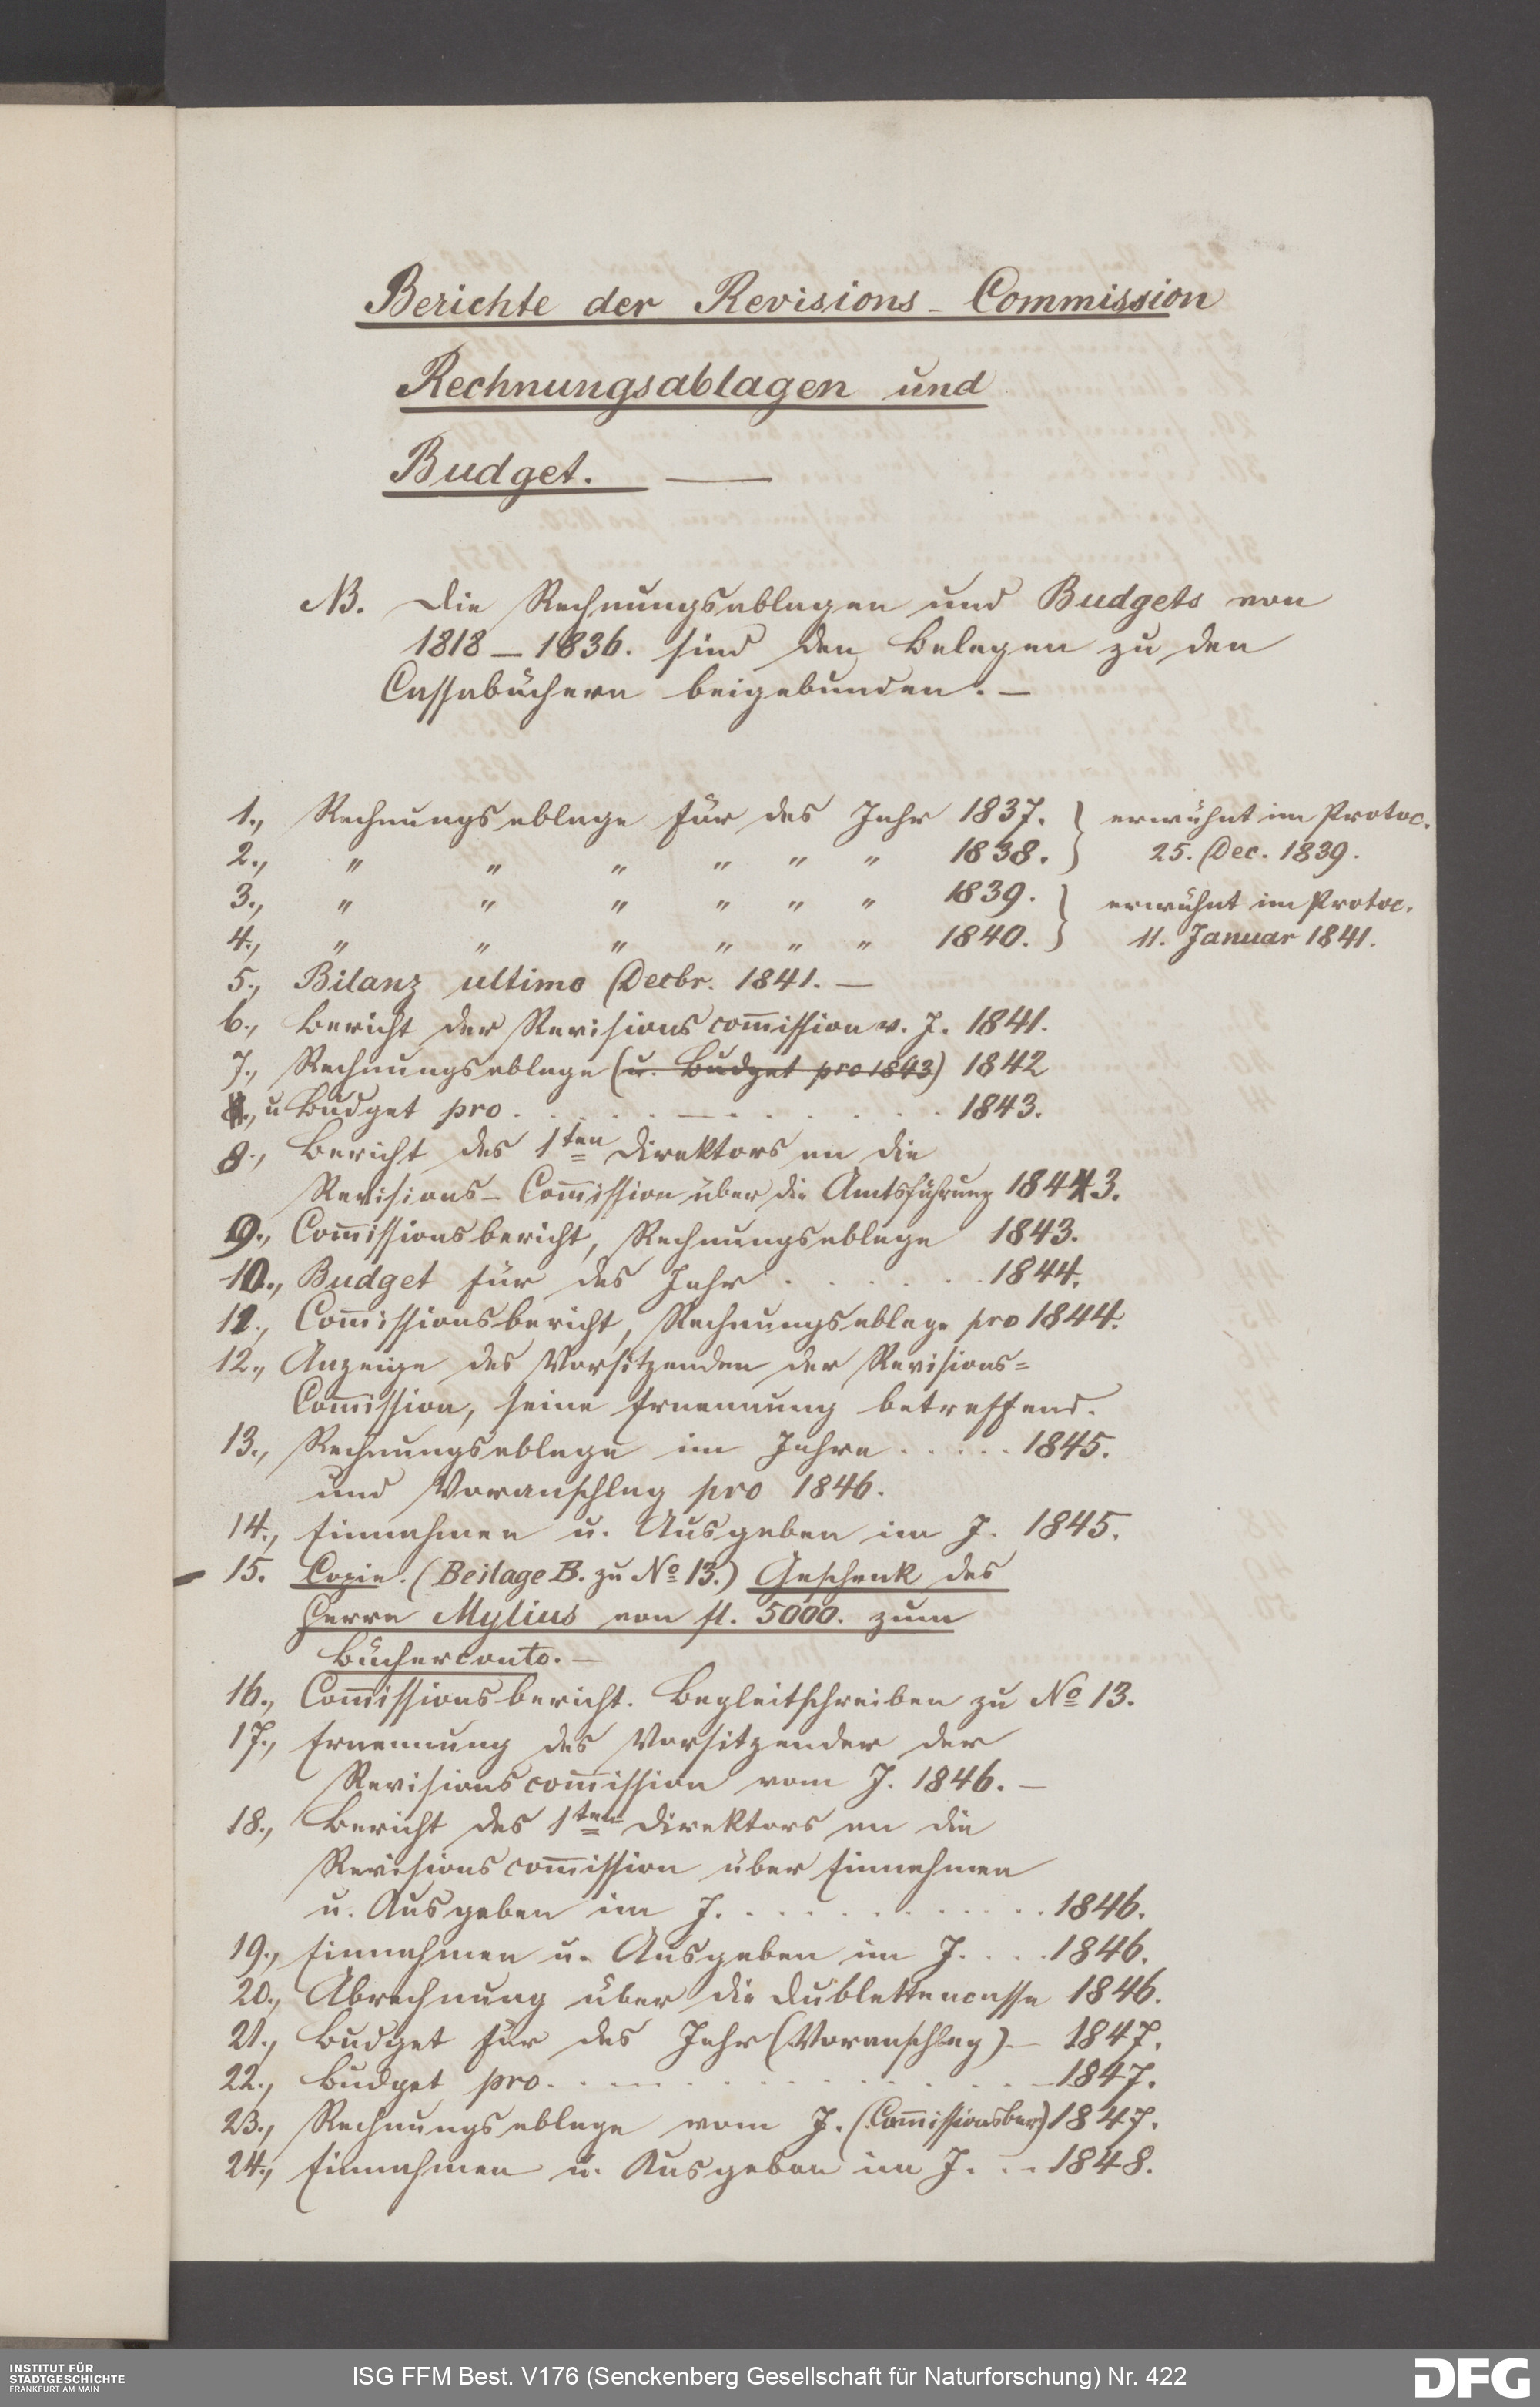 Berichte der Revisions-Commission
Rechnungsablagen und
Budget. —
NB. Die Rechnungsablagen und Budgets von
1818–1836. sind den Belegen zu den
Cassabüchern beigebunden. —
1., Rechnungsablage für das Jahr 1837. } erwähnt im Protoc.
2., " " " " " " 1838. } 25. Dec. 1839.
3., " " " " " " 1839. } erwähnt im Protoc.
4., " " " " " " 1840. } 11. Januar 1841.
5., Bilanz ultimo Decbr. 1841. —
6., Bericht der Revisionscom̄ission v. J. 1841.
7., Rechnungsablage (u. Budget pro 1843) 1842
u Budget pro . . . . . . . . . . 1843.
8., Bericht des 1ten Direktors an die
Revisions-Com̄ission über die Amtsführung 1843.
9., Com̄issionsbericht, Rechnungsablage 1843.
10., Budget für das Jahr . . . . . . 1844.
11., Com̄issionsbericht, Rechnungsablage pro 1844.
12., Anzeige des Vorsitzenden der Revisions=
Com̄ission, seine Ernennung betreffend.
13., Rechnungsablage im Jahre . . . . . 1845.
und Voranschlag pro 1846.
14., Einnahmen u. Ausgaben im J. 1845.
15. Copie. (Beilage B. zu No 13.) Geschenk des
Herrn Mylius von fl. 5000. zum
Bücherconto. —
16., Com̄issionsbericht. Begleitschreiben zu No 13.
17., Ernennung des Vorsitzender der
Revisionscom̄ission vom J. 1846. —
18., Bericht des 1ten Direktors an die
Revisionscom̄ission über Einnahmen
u. Ausgaben im J. . . . . . . . . . . . 1846.
19., Einnahmen u. Ausgaben im J. . . . 1846.
20., Abrechnung über die Dublettencasse 1846.
21., Budget für das Jahr (Voranschlag) — 1847.
22., Budget pro . . . . . . . . . . . . 1847.
23., Rechnungsablage vom J. (Com̄issionsber) 1847.
24., Einnahmen u. Ausgaben im J. . . 1848.
INSTITUT FÜR
STADTGESCHICHTE
FRANKFURT AM MAIN
ISG FFM Best. V176 (Senckenberg Gesellschaft für Naturforschung) Nr. 422
DFG